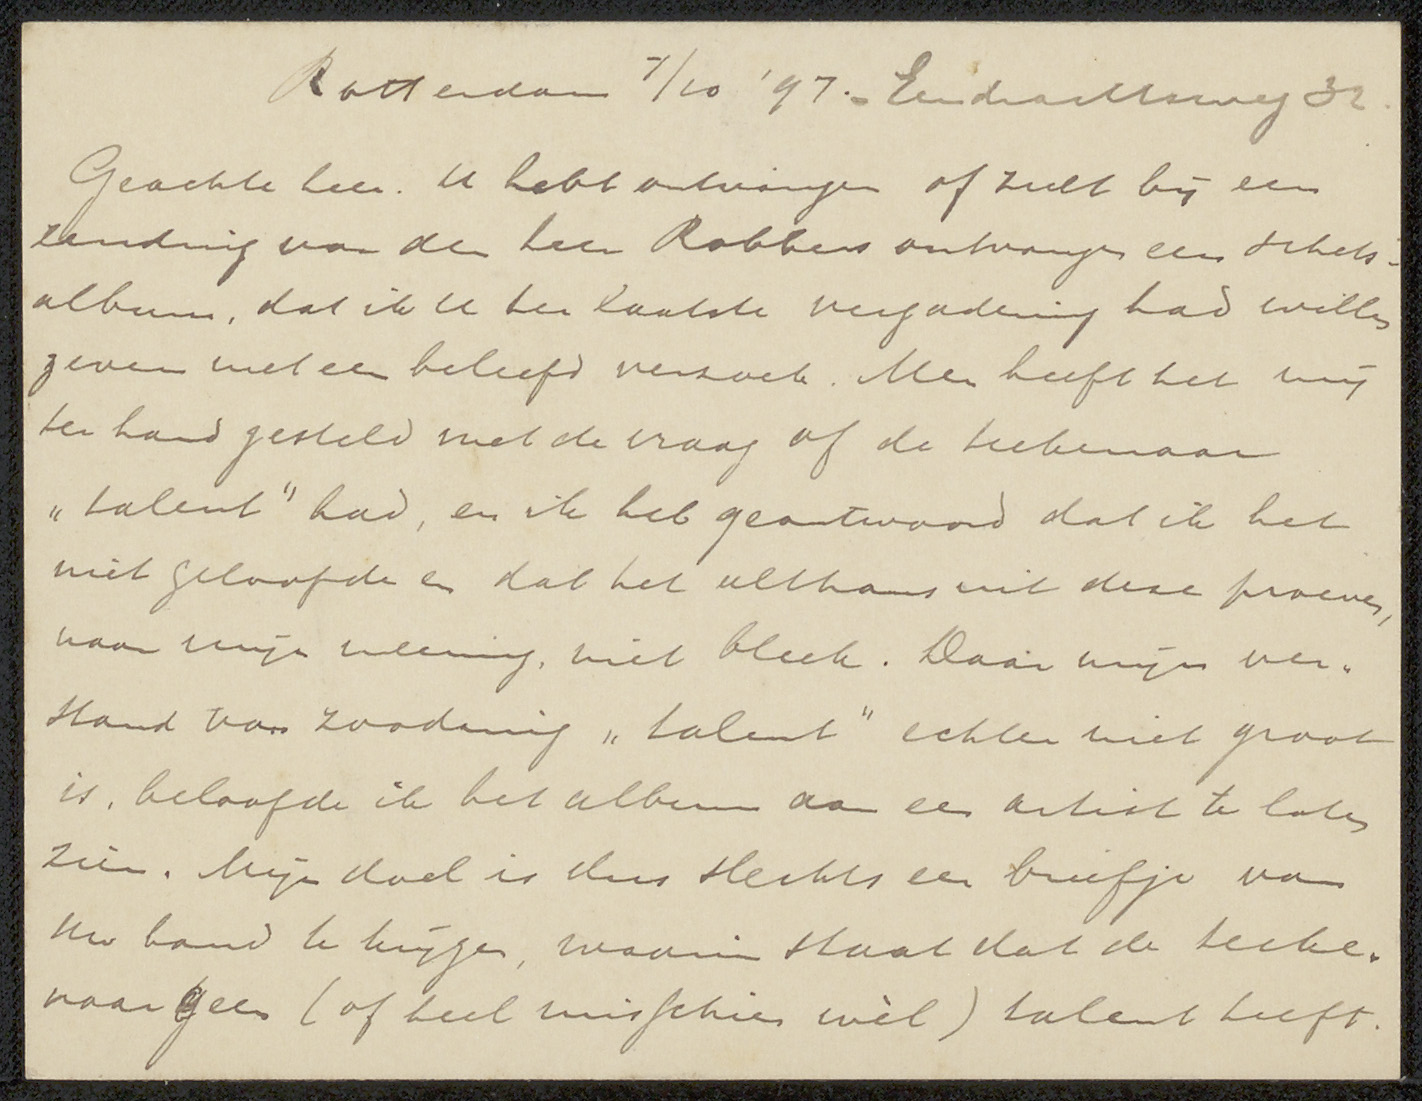 Rotterdam 7/10 '97. - Eendrachtsweg 32.
Geachte heer. U hebt ontvangen of zult bij een
zending van den heer Robbers ontvangen een schets-
album, dat ik U ter laatste vergadering had willen
geven met een beleefd verzoek. Men heeft het mij
ter hand gesteld met de vraag of de teekenaar
„talent" had, en ik heb geantwoord dat ik het
niet geloofde en dat het althans uit deze proeven,
naar mijn meening, niet bleek. Daar mijn ver-
stand van zoodanig „talent" echter niet groot
is, beloofde ik het album aan een artist te laten
zien. Mijn doel is dus slechts een briefje van
Uw hand te krijgen, waarin staat dat de teeke-
naar geen (of heel misschien wèl) talent heeft.